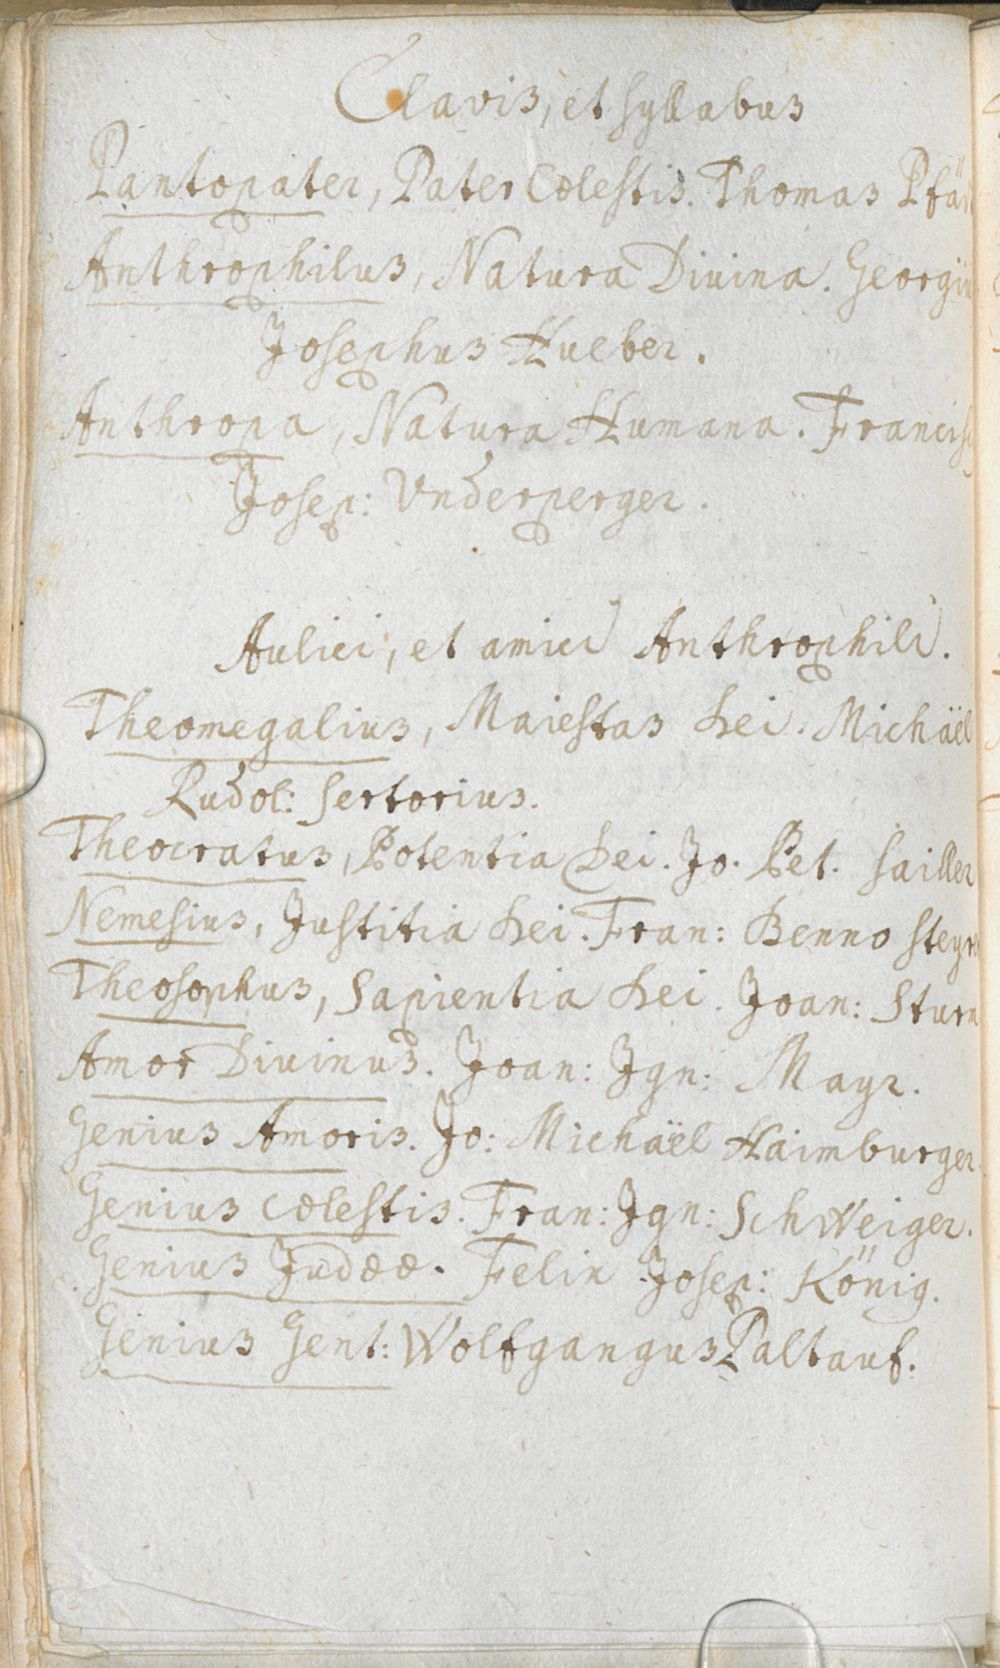 Clavis, et syllabus
Pantopater, Pater Cœlestis. Thomas
Anthrophilus, Natura Diuina. Georgiu
Josephus Hueber.
Anthropa, Natura Humana. Francis
Josep: Vnderperger.
Aulici, et amici Anthrophili.
Theomegalius, Maiestas Dei. Michaël
Rudol: Sertorius.
Theocratus, Potentia Dei. Jo. Pet. Sailler
Nemesius, Justitia Dei. Fran: Benno
Theosophus, Sapientia Dei. Joan: Sturm
Amor Diuinus. Joan: Ign: Mayr.
Genius Amoris. Jo: Michaël Haimburger.
Genius cœlestis. Fran: Ign: Schweiger.
Genius Judææ. Felix Josep: König.
Genius Gent: Wolfgangus Paltauf.